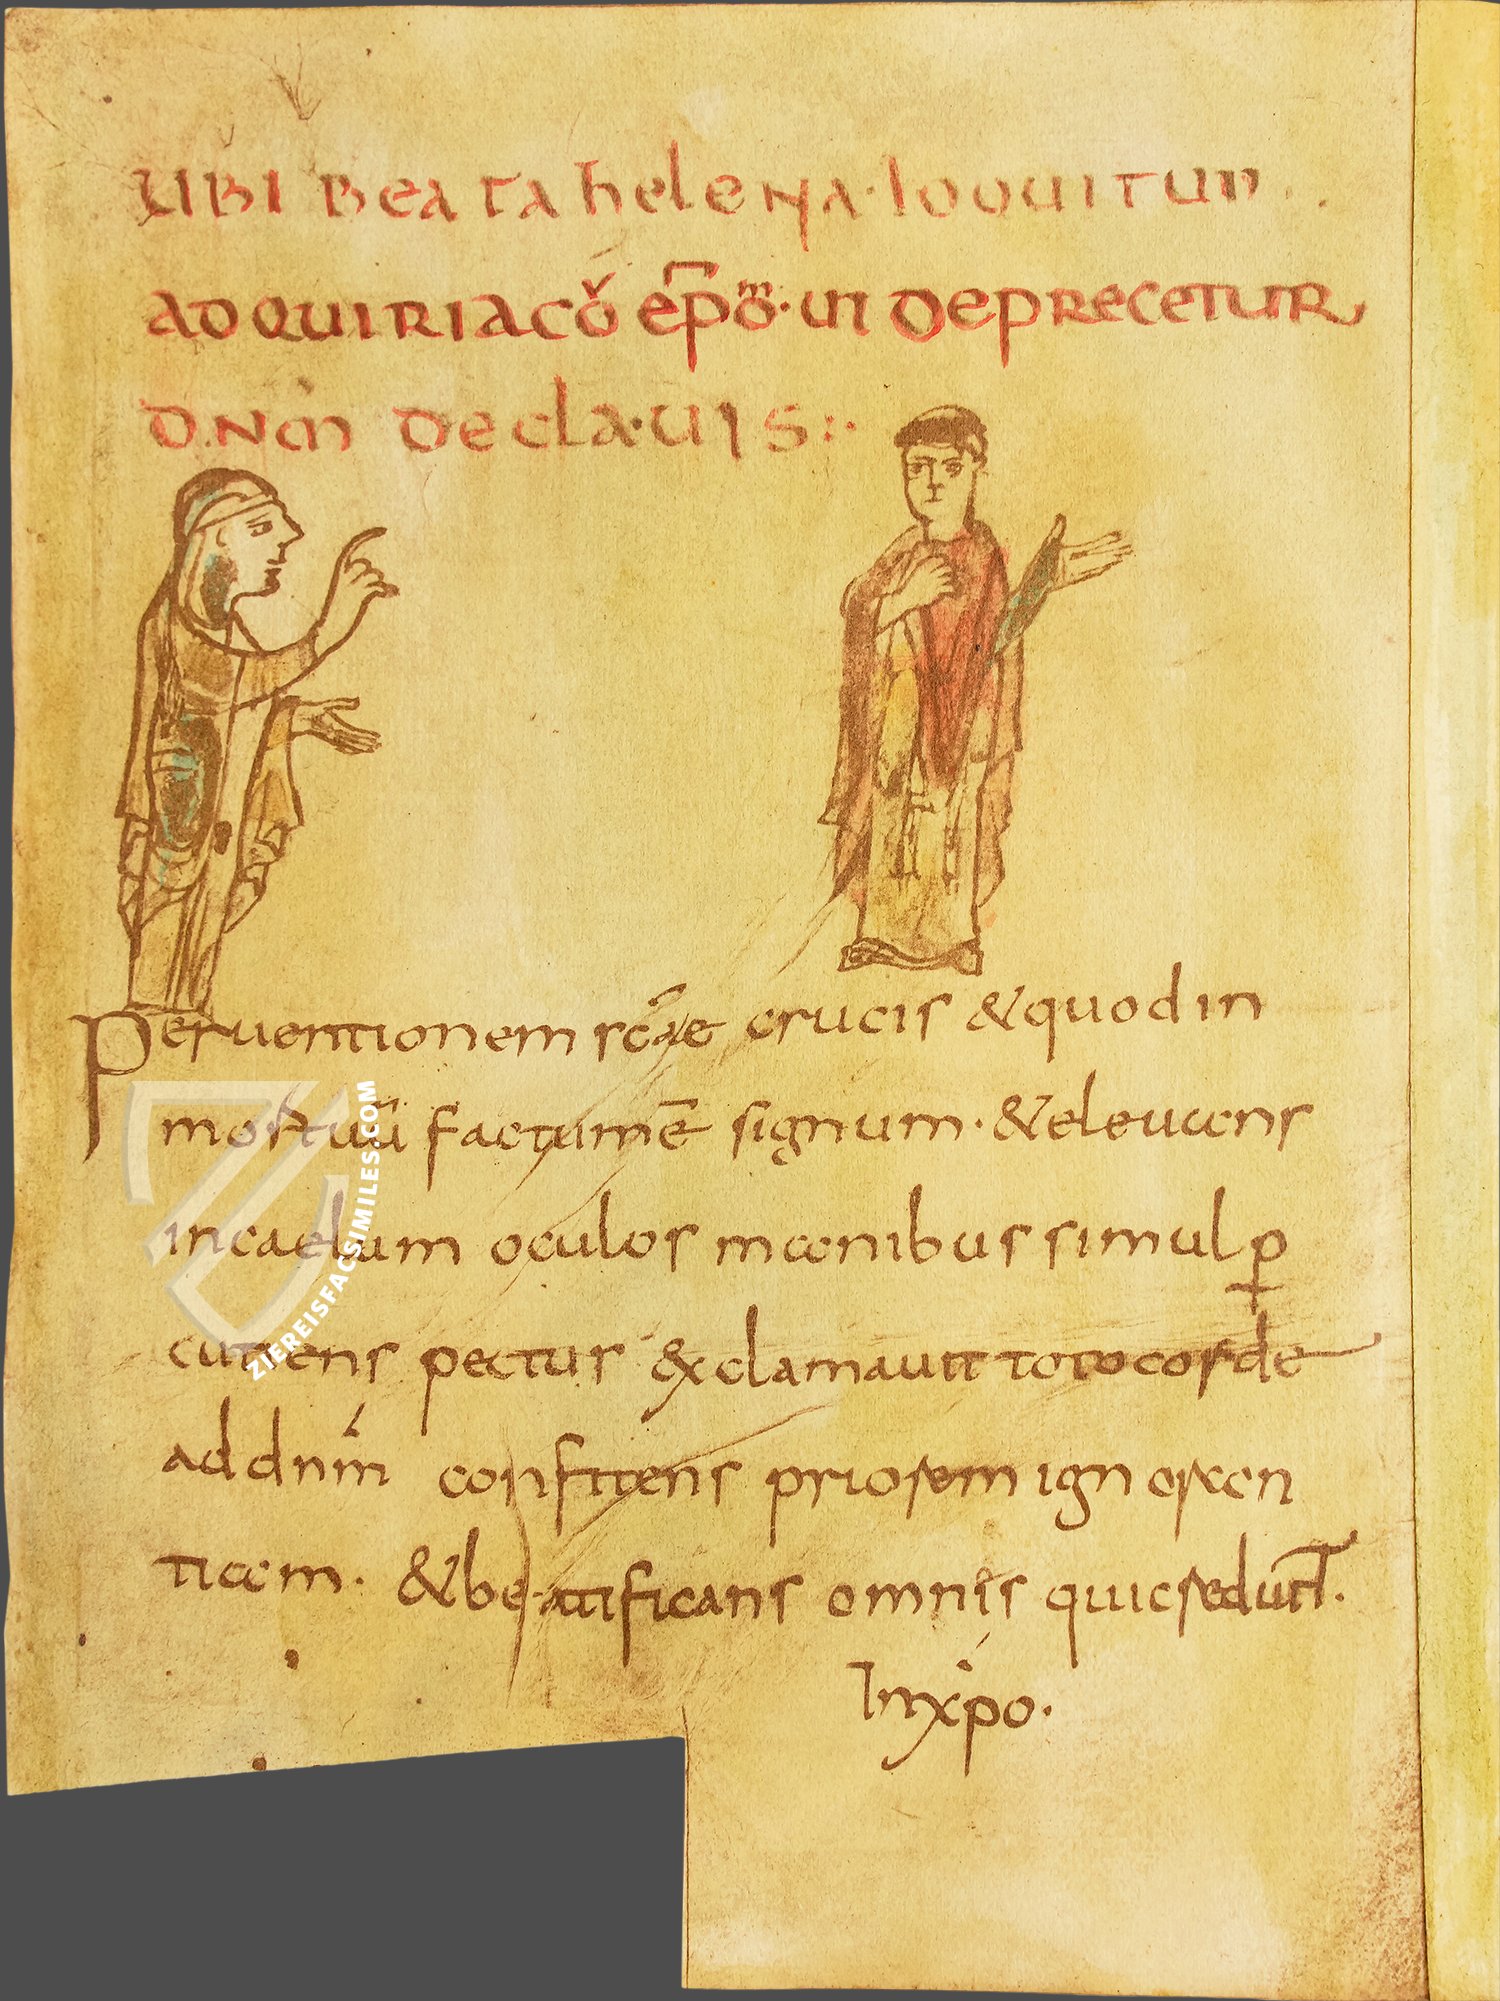 UBI BEATA hELENA·LOQUITUR.
AD QUIRIACŬ EP̄OM̄·UT DEPRECETUR
D̄NM̄ DE CLA·UIS:·
Per uentionem sc̄ae crucis & quod in
mortuū factum ē signum· & eleuans
in caelum oculos manibus simul ꝑ
cutiens pectus & xclamauit toto corde
ad dn̄m confitens priorem ignoran
tiam· & be atificans omnis qui credunt·
In xp̄o·
ZIEREISFACSIMILES.COM